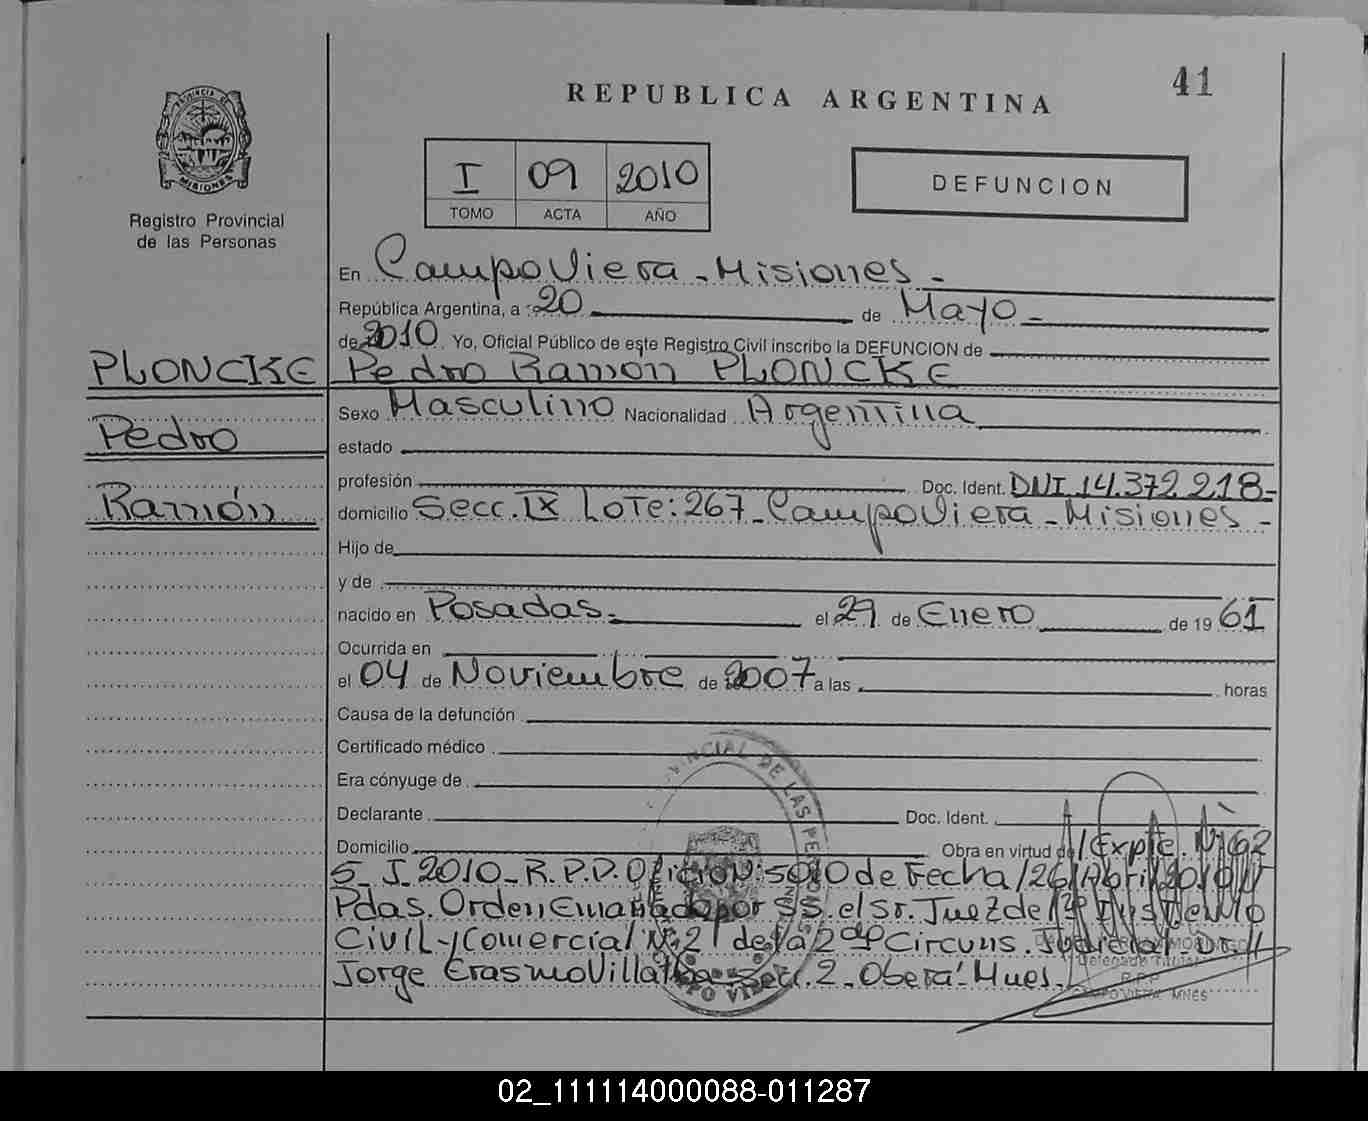 41
REPUBLICA ARGENTINA
PROVINCIA DE
MISIONES
I 09 2010
TOMO ACTA AÑO
DEFUNCION
Registro Provincial
de las Personas
En CampoViera - Misiones -
República Argentina, a 20 de Mayo -
de 2010. Yo, Oficial Público de este Registro Civil inscribo la DEFUNCION de
PLONCKE Pedro Ramón PLONCKE
Sexo Masculino Nacionalidad Argentina
Pedro
estado
profesión Doc. Ident. DNI 14.372.218-
Ramón
domicilio Secc. IX Lote: 267 - CampoViera - Misiones -
Hijo de
y de
nacido en Posadas. el 29 de Enero de 19 61
Ocurrida en
el 04 de Noviembre de 2007 a las horas
Causa de la defunción
Certificado médico
Era cónyuge de
Declarante Doc. Ident.
Domicilio Obra en virtud de Expte. Nº 62
5 I. 2010 - R.P.P. Oficio Nº: 5010 de Fecha /26/Abril/2010//
Pdas. Orden Emanado por SS. el Sr. Juez de
Civil y Comercial Nº 2 de la 2da Circuns. Judicial Dr.
Jorge Erasmo Villalba Sec. 2 - Oberá - Mnes.
Delegado Titular
R.P.P.
CAMPO VIERA MNES
02_111114000088-011287